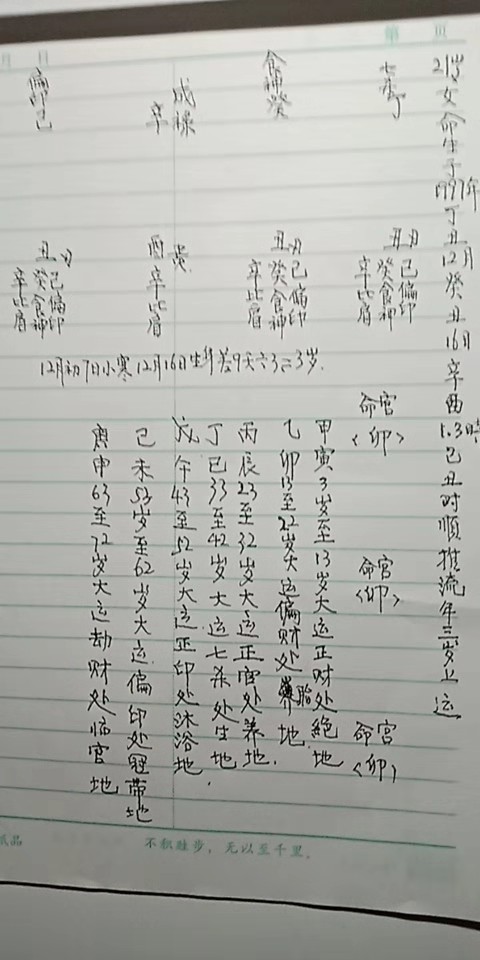 第 页
月 日
21岁女命生于1997年丁丑12月癸丑16日辛酉1.3時己丑时順推流年三岁上运
七杀丁
食神癸
成禄
辛
偏印己
丑月
己偏印
癸食神
辛比肩
丑月
己偏印
癸食神
辛比肩
酉
辛比肩
丑月
己偏印
癸食神
辛比肩
12月初7日小寒12月16日生年差9天六3=3岁.
命宫
<卯>
命宫
<卯>
命宫
<卯>
甲寅3岁至13岁大运正财处絕地
乙卯13至22岁大运偏财处胎地
丙辰23至32岁大运正官处养地.
丁巳33至42岁大运七杀处生地.
戊午43至52岁大运正印处沐浴地
己未53岁至62岁大运偏印处冠带地
庚申63至72岁大运劫财处临官地
纸品
不积跬步，无以至千里.